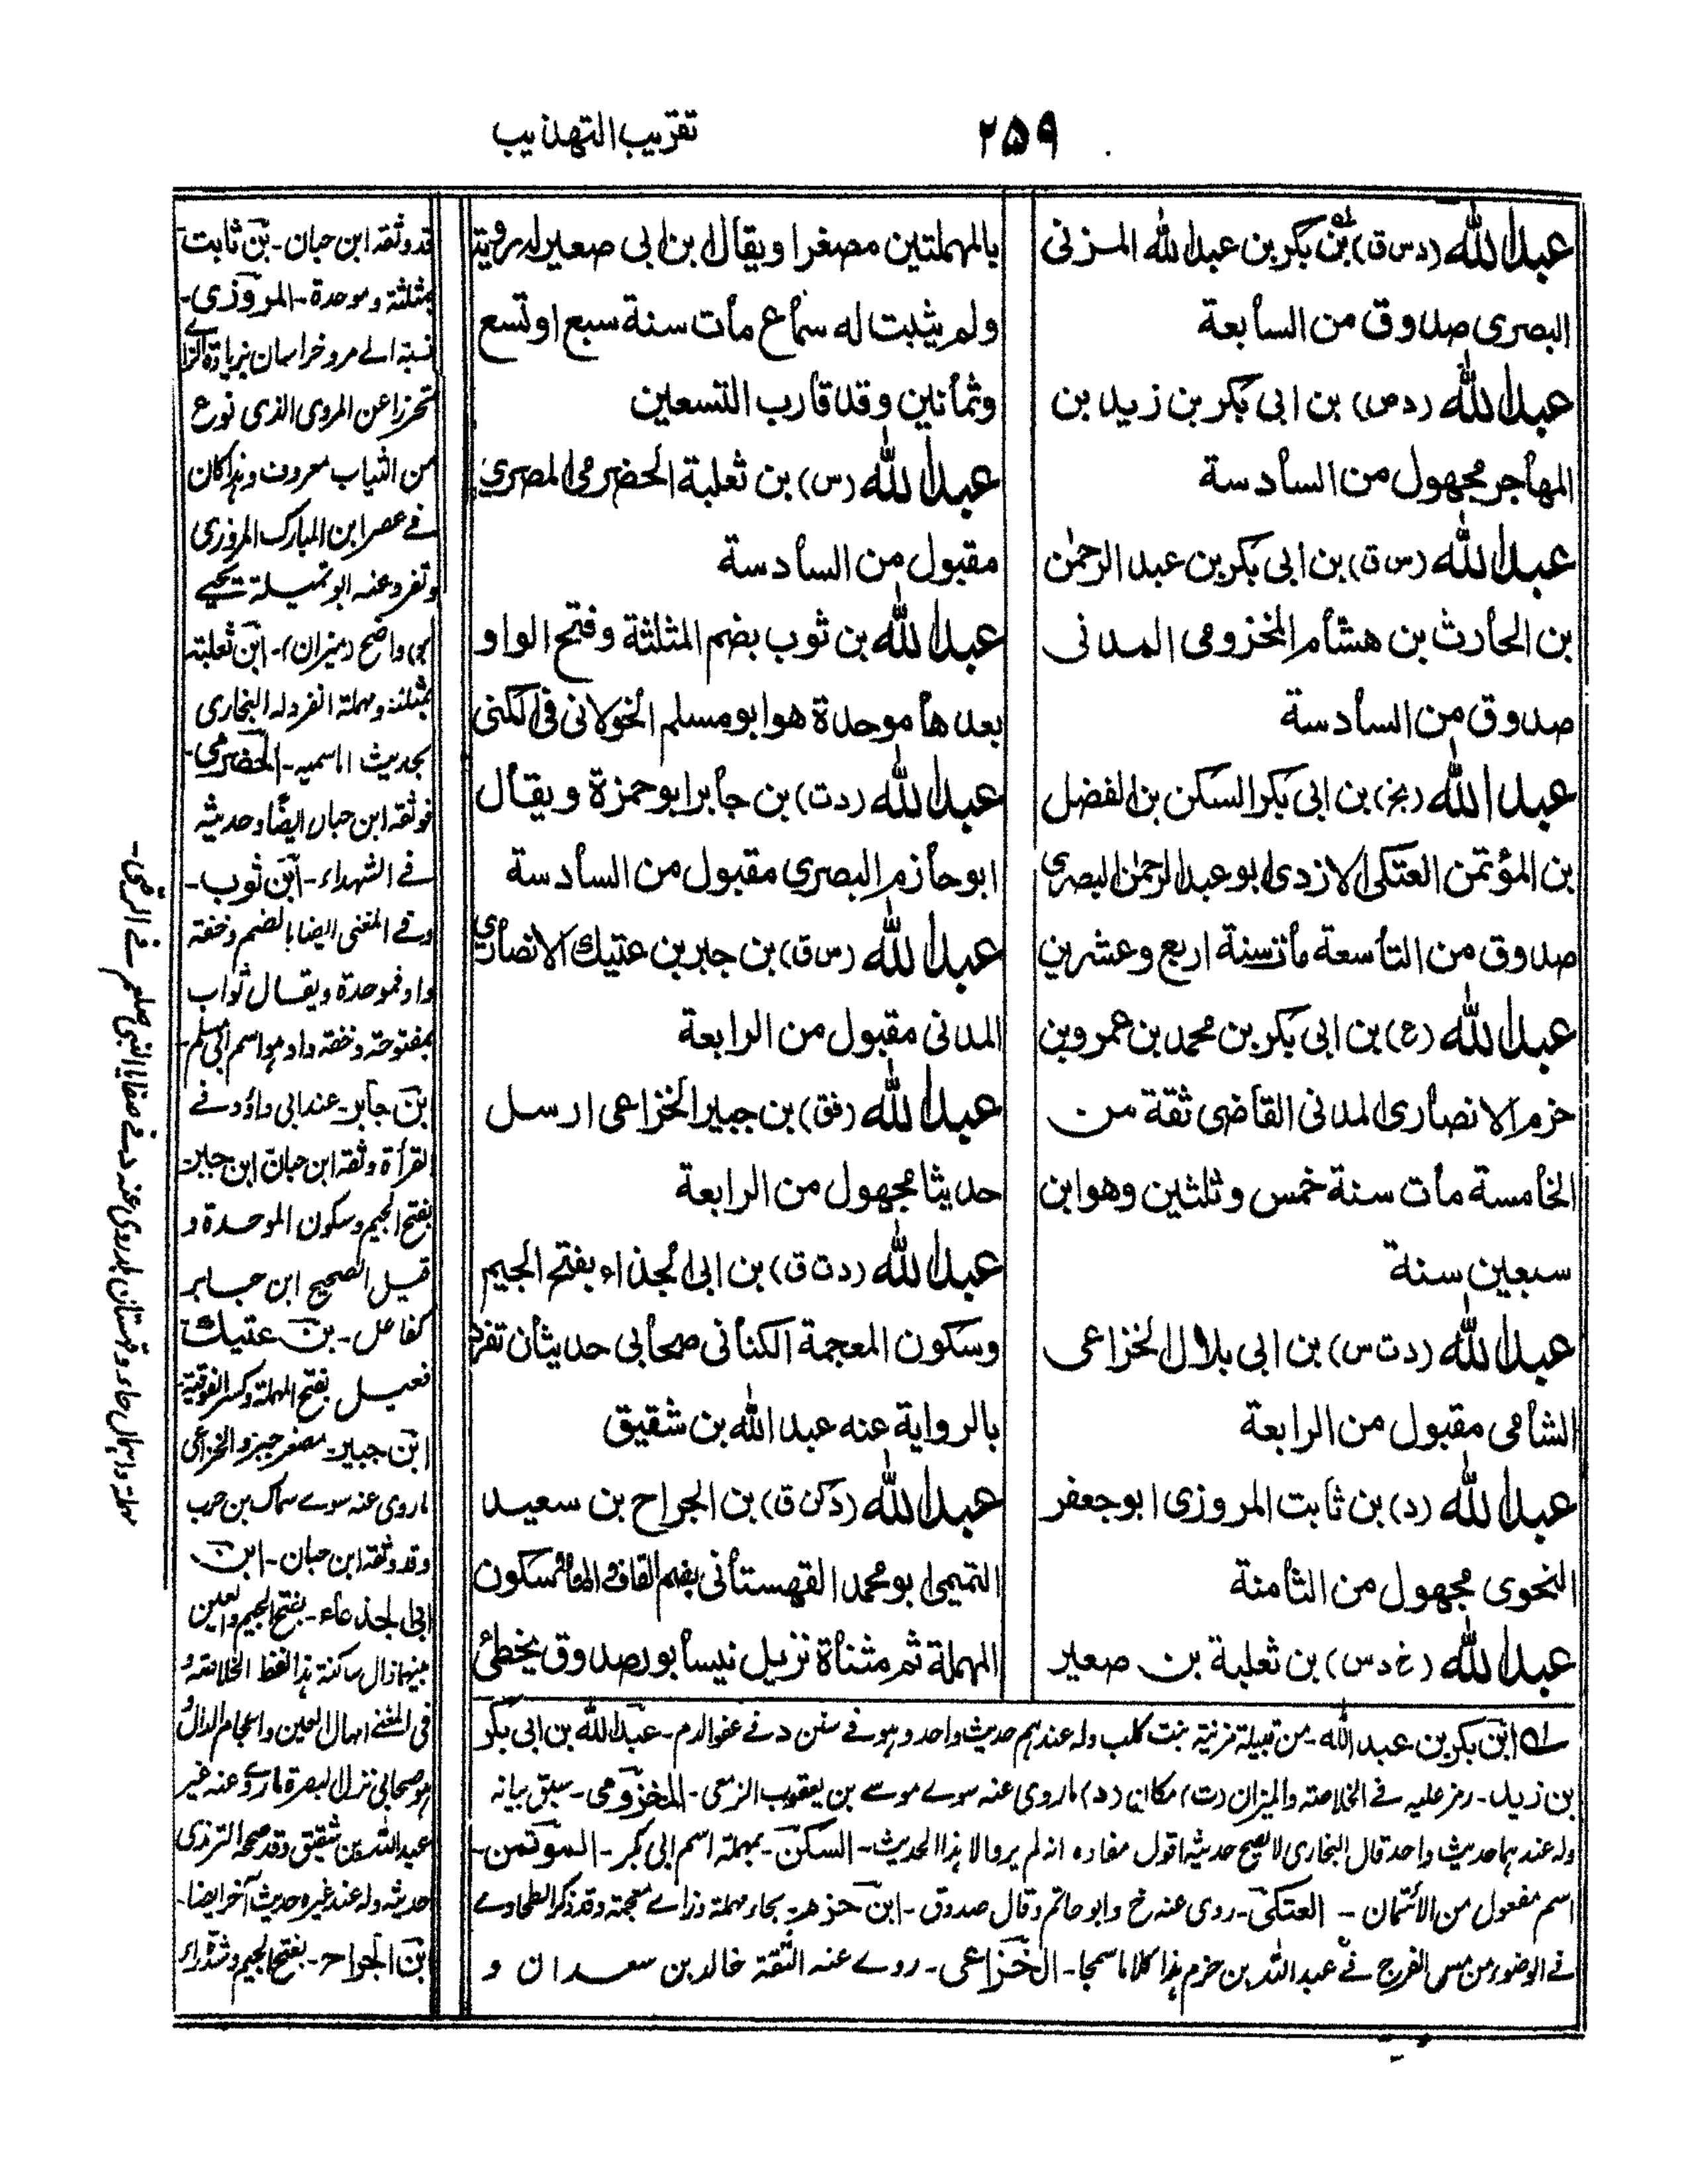 تقریب التهذیب
۲۵۹
عبد الله (د س ق) بن بکر بن عبد الله المزنی
البصری صدوق من السابعة
عبد الله (د ص) بن ابی بکر بن زید بن
المهاجر مجهول من السادسة
عبد الله (س ق) بن ابی بکر بن عبد الرحمٰن
بن الحارث بن هشام المخزومی المدنی
صدوق من السادسة
عبد الله (بخ) بن ابی بکر السکن بن الفضل
بن المؤتمن العتکی الازدی ابو عبد الرحمٰن البصری
صدوق من التاسعة مات سنة اربع وعشرین
عبد الله (ع) بن ابی بکر بن محمد بن عمرو بن
حزم الانصاری المدنی القاضی ثقة من
الخامسة مات سنة خمس وثلثین وهو ابن
سبعین سنة
عبد الله (د ت س) بن ابی بلال الخزاعی
الشامی مقبول من الرابعة
عبد الله (د) بن ثابت المروزی ابو جعفر
النحوی مجهول من الثامنة
عبد الله (خ د س) بن ثعلبة بن صعیر
بالمهملتین مصغرا ویقال ابن ابی صعیر له رویة
ولم یثبت له سماع مات سنة سبع او تسع
وثمانین وقد قارب التسعین
عبد الله (س) بن ثعلبة الحضرمی المصری
مقبول من السادسة
عبد الله بن ثوب بضم المثلثة وفتح الواو
بعدها موحدة هو ابو مسلم الخولانی فی الکنی
عبد الله (د ت) بن جابر ابو حمزة ویقال
ابو حازم البصری مقبول من السادسة
عبد الله (س ق) بن جبر بن عتیك الانصاری
المدنی مقبول من الرابعة
عبد الله (فق) بن جبیر الخزاعی ارسل
حدیثا مجهول من الرابعة
عبد الله (د ت ق) بن ابی الجذاء بفتح الجیم
وسکون المعجمة الکنانی صحابی حدیثان تفرد
بالروایة عنه عبد الله بن شقیق
عبد الله (د کن ق) بن الجراح بن سعید
التمیمی ابو محمد القهستانی بضم القاف والهاء وسکون
المهملة ثم مثناة نزیل نیسابور صدوق یخطئ
ابن بکر بن عبد الله - من قبیلة مزنیة بنت کلب وله عندهم حدیث واحد وهو فی سنن د فی عفو الدم - عبد الله بن ابی بکر
بن زید - رمز علیه فی الخلاصة والمیزان (ت) مکان (د) ما روی عنه سوی موسی بن یعقوب الزمعی - المخزومی - سبق بیانه
وله عندهما حدیث واحد قال البخاری لا یصح حدیثه اقول مفاده انه لم یرو الا هذا الحدیث - السکن - بمهملة اسم ابی بکر - الموتمن -
اسم مفعول من الائتمان - العتکی - روی عنه خ وابو حاتم وقال صدوق - ابن حزم - بحاء مهملة وزای معجمة وقد ذکر الطحاوی
فی الوضوء من مس الفرج فی عبد الله بن حزم هذا کلاما سمجا - الخزاعی - روی عنه الثقة خالد بن سعدان و
قد وثقه ابن حبان - بن ثابت
بمثلثة وموحدة - المروزی -
نسبة الی مرو خراسان بزیادة الزای
تحرزا عن المروی الذی نوع
من الثیاب معروف وهذا کان
فی عصر ابن المبارك المروزی
وتفرد عنه ابو تمیلة یحیی
بن واضح (میزان) - ابن ثعلبة
بمثلثة ومهملة انفرد له البخاری
بحدیث - الحضرمی -
وثقه ابن حبان ایضا وحدیثه
فی الشهداء - ابن ثوب -
وفی المغنی ایضا بالضم وخفة
واو فموحدة ویقال ثواب
بمفتوحة وخفة واو هو اسم ابی مسلم -
بن جابر - عند ابی داؤد فی
القرأة وثقه ابن حبان ابن جبر
بفتح الجیم وسکون الموحدة و
قیل الصحیح ابن جابر
کفاعل - بن عتیك
فعیل بفتح المهملة وکسر الفوقیة -
ابن جبیر - مصغر جبر والخزاعی
ما روی عنه سوی سماك بن حرب
وقد وثقه ابن حبان - ابن
ابی الجذعاء - بفتح الجیم والعین
بینهما ذال ساکنة هذا لفظ الخلاصة و
فی المغنی اهمال العین واعجام الذال و
هو صحابی نزل البصرة ما روی عنه غیر
عبد الله بن شقیق وقد صحح الترمذی
حدیثه وله عند غیره حدیث آخر ایضا -
ابن الجراح - بفتح الجیم وشدة راء